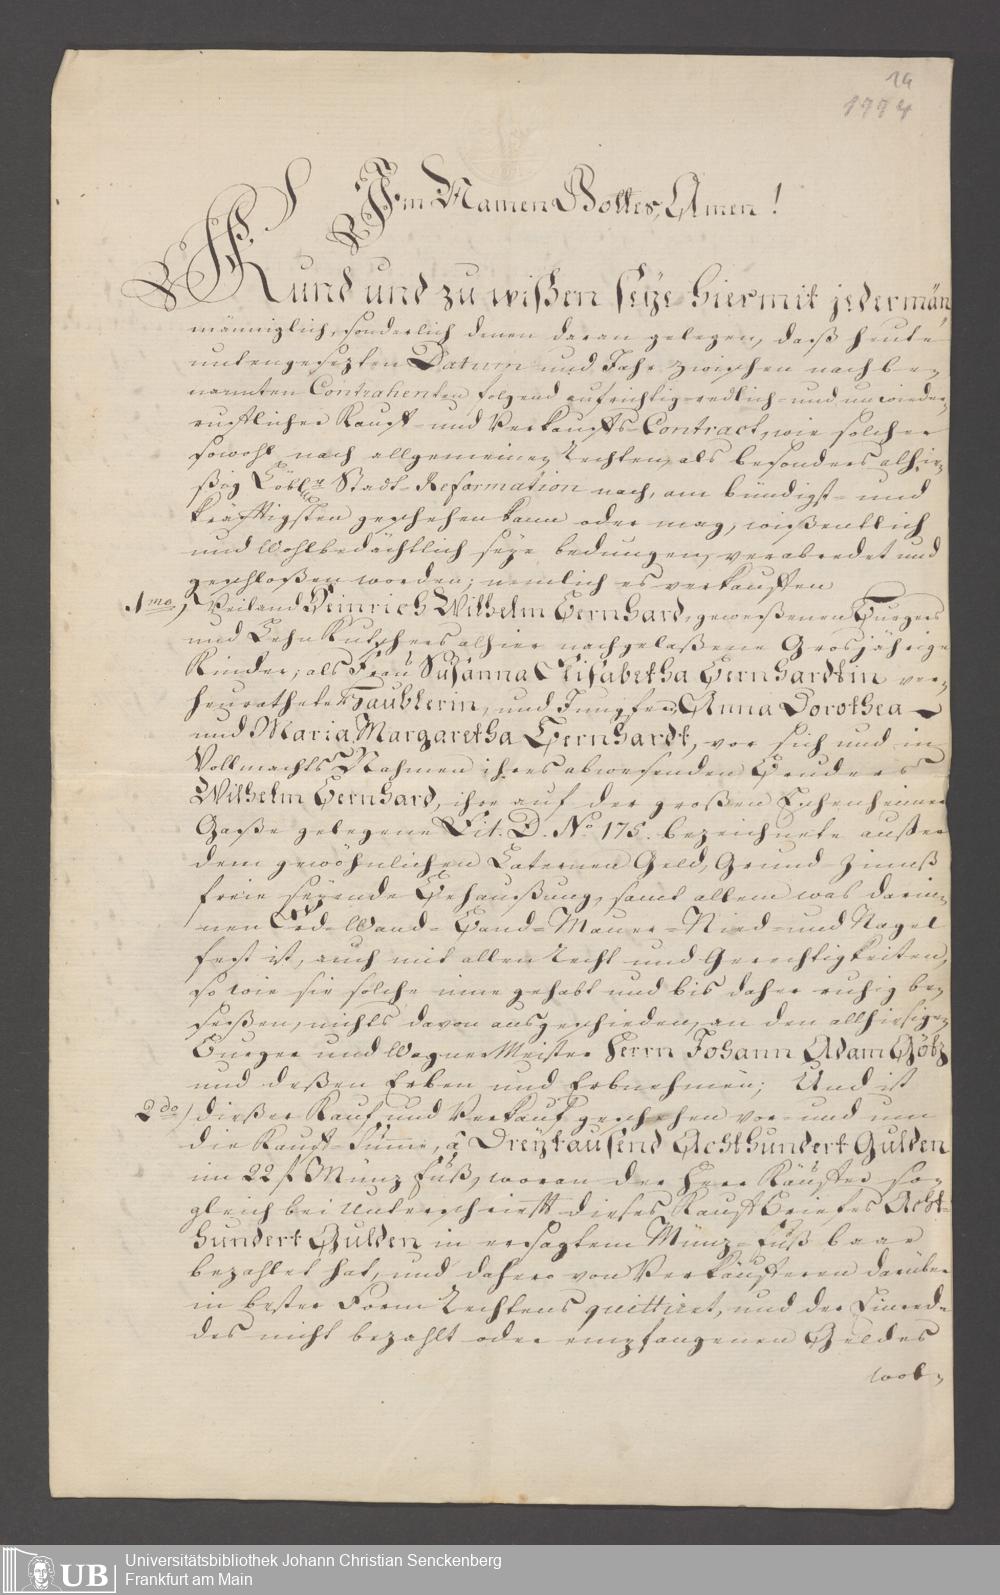 14
1774
Im Namen Gottes, Amen!
Kund und zu wißen seÿe hiermit jedermän
männiglich, sonderlich denen daran gelegen, daß heute
untengesezten Datum und Jahr zwischen nachbe-
nannten Contrahenten folgend aufrichtig-redlich- und unwieder-
ruflicher Kauff- und Verkauffs-Contract, wie solcher
sowohl nach allgemeinen Rechten, als besonders alhie-
ßig Löbl.r Stadt-Reformation nach, am bündigst- und
kräfftigsten geschehen kann oder mag, wißentlich
und Wohlbedächtlich seÿe bedungen, verabredet und
geschloßen worden; nemlich es verkauffen
1mo, Weiland Heinrich Wilhelm Bernhard, geweßenen Burgers
und Lehn Kutschers alhier nachgelaßene Grosjährige
Kinder; als Frau Susanna Elisabetha Bernhardtin ver-
heurathete Taublerin, und Jungfer Anna Dorothea
und Maria Margaretha Bernhardt, vor sich und in
Vollmachts Nahmen ihres abwesenden Bruders
Wilhelm Bernhard, ihre auf der großen Eschenheimer
Gaße gelegene Lit. D. No 175. bezeichnete außer
dem gewöhnlichen Laternen Geld, Grund-Zinnß
freie seÿende Behaußung, samt allem was darin-
nen Erd- Wand- Band- Mauer- Nied- und Nagel
fest ist, auch mit allen Recht und Gerechtigkeiten,
so wie sie solche inne gehabt und bis daher ruhig be-
seßen, nichts davon ausgeschieden, an den allhiesigen
Burger und WagnerMeister Herrn Johann Adam Götz
und deßen Erben und Erbnehmen; Und ist
2do) dießer Kauf und Verkauf geschehen vor- und um
die Kauff-Summe, à Dreÿtausend Achthundert Gulden
im 22 f Münz Fuß, woran der Herr Käuffer so-
gleich bei Unterschrifft dieses Kauff Briefes Acht-
hundert Gulden in ersagtem Münz-Fuß baar
bezahlet hat, und dahero von Verkäufferen darüber
in bester Form Rechtens quittiret, und der Einrede
des nicht bezahlt oder empfangenen Geldes
wol-
UB
Universitätsbibliothek Johann Christian Senckenberg
Frankfurt am Main